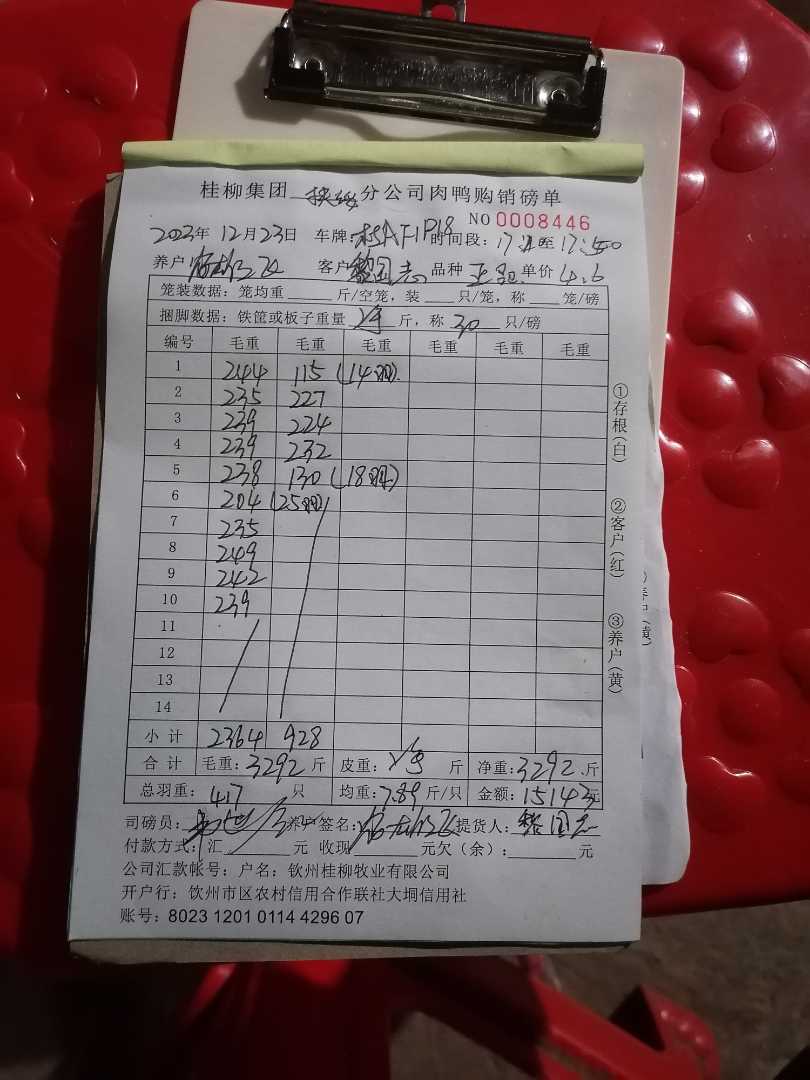 桂柳集团 分公司肉鸭购销磅单
NO 0008446
2023年 12月23日 车牌: 时间段: 17: 至 17:50
养户 客户 品种 单价 4.6
笼装数据: 笼均重 斤/空笼, 装 只/笼, 称 笼/磅
捆脚数据: 铁筐或板子重量 斤, 称 30 只/磅
编号 毛重 毛重 毛重 毛重 毛重 毛重
1 244 115 (14羽)
2 235 227
3 239 224
4 239 232
5 238 130 (18羽)
6 204 (25羽)
7 235
8 249
9 242
10 239
11
12
13
14
小计 2364 928
合计 毛重: 3292 斤 皮重: 斤 净重: 3292 斤
总羽重: 417 只 均重: 7.89 斤/只 金额: 15143元
司磅员: 养户签名: 提货人:
付款方式: 汇 元 收现 元欠(余): 元
公司汇款帐号: 户名: 钦州桂柳牧业有限公司
开户行: 钦州市区农村信用合作联社大垌信用社
账号: 8023 1201 0114 4296 07
①存根(白)
②客户(红)
③养户(黄)